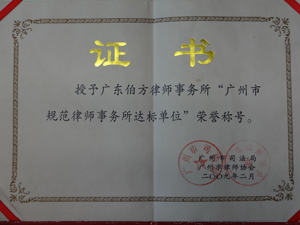 证书
授予广东伯方律师事务所“广州市
规范律师事务所达标单位”荣誉称号。
广州市司法局
广州市律师协会
二〇〇九年二月